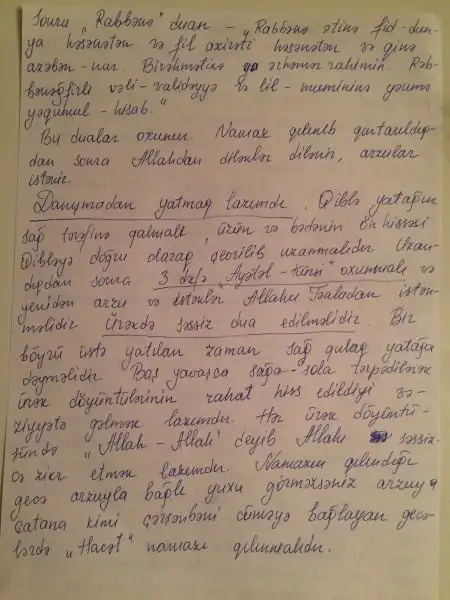 Sonra „Rabbənə" duan – „Rabbənə ətinə fid-dun-
ya həsənətən və fil axirəti həsənətən və qinə
azəbən-nar. Birəhmətikə yə ərhəmər rahimin. Rəb-
bənəğfirli vəli-validəyyə və lil-mumininə yəumə
yəqumul-hisab."
Bu dualar oxunur. Namaz qılınıb qurtarıldıq-
dan sonra Allahdan diləklər dilənir, arzular
istənir.
Danışmadan yatmaq lazımdı. Qiblə yatağın
sağ tərəfinə qalmalı, üzün və bədənin ön hissəsi
Qibləyə doğru olaraq çevrilib uzanmalıdır. Uzan-
dıqdan sonra 3 dəfə "Ayətəl-kürsi" oxunmalı və
yenidən arzu və istəklər Allahu Təaladan istən-
məlidir. Ürəkdə səssiz dua edilməlidir. Bir
böyrü üstə yatılan zaman sağ qulaq yatağa
dəyməlidir. Baş yavaşca sağa-sola tərpədilərək
ürək döyüntülərinin rahat hiss edildiyi və-
ziyyətə gəlmək lazımdır. Hər ürək döyüntü-
sündə „Allah-Allah" deyib Allahı səssiz-
cə zikr etmək lazımdır. Namazın qılındığı
gecə arzuyla bağlı yuxu görməzsəniz arzuya
çatana kimi çərşənbəni cüməyə bağlayan gecə-
lərdə „Hacət" namazı qılınmalıdır.